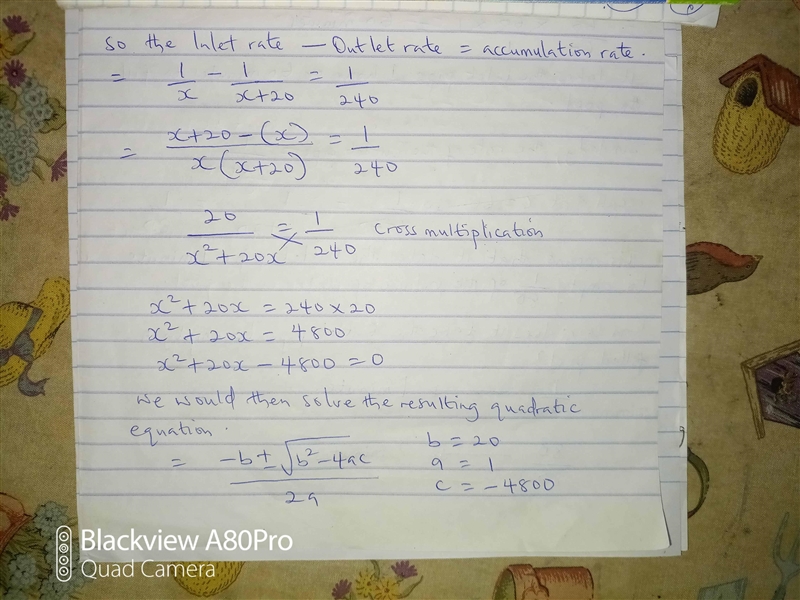 so the Inlet rate — Outlet rate = accumulation rate.
= 1/x - 1/(x+20) = 1/240
= (x+20-(x))/(x(x+20)) = 1/240
20/(x²+20x) = 1/240 cross multiplication
x²+20x = 240×20
x²+20x = 4800
x²+20x-4800 = 0
we would then solve the resulting quadratic
equation.
= (-b±√(b²-4ac))/2a
b = 20
a = 1
c = -4800
Blackview A80Pro
Quad Camera